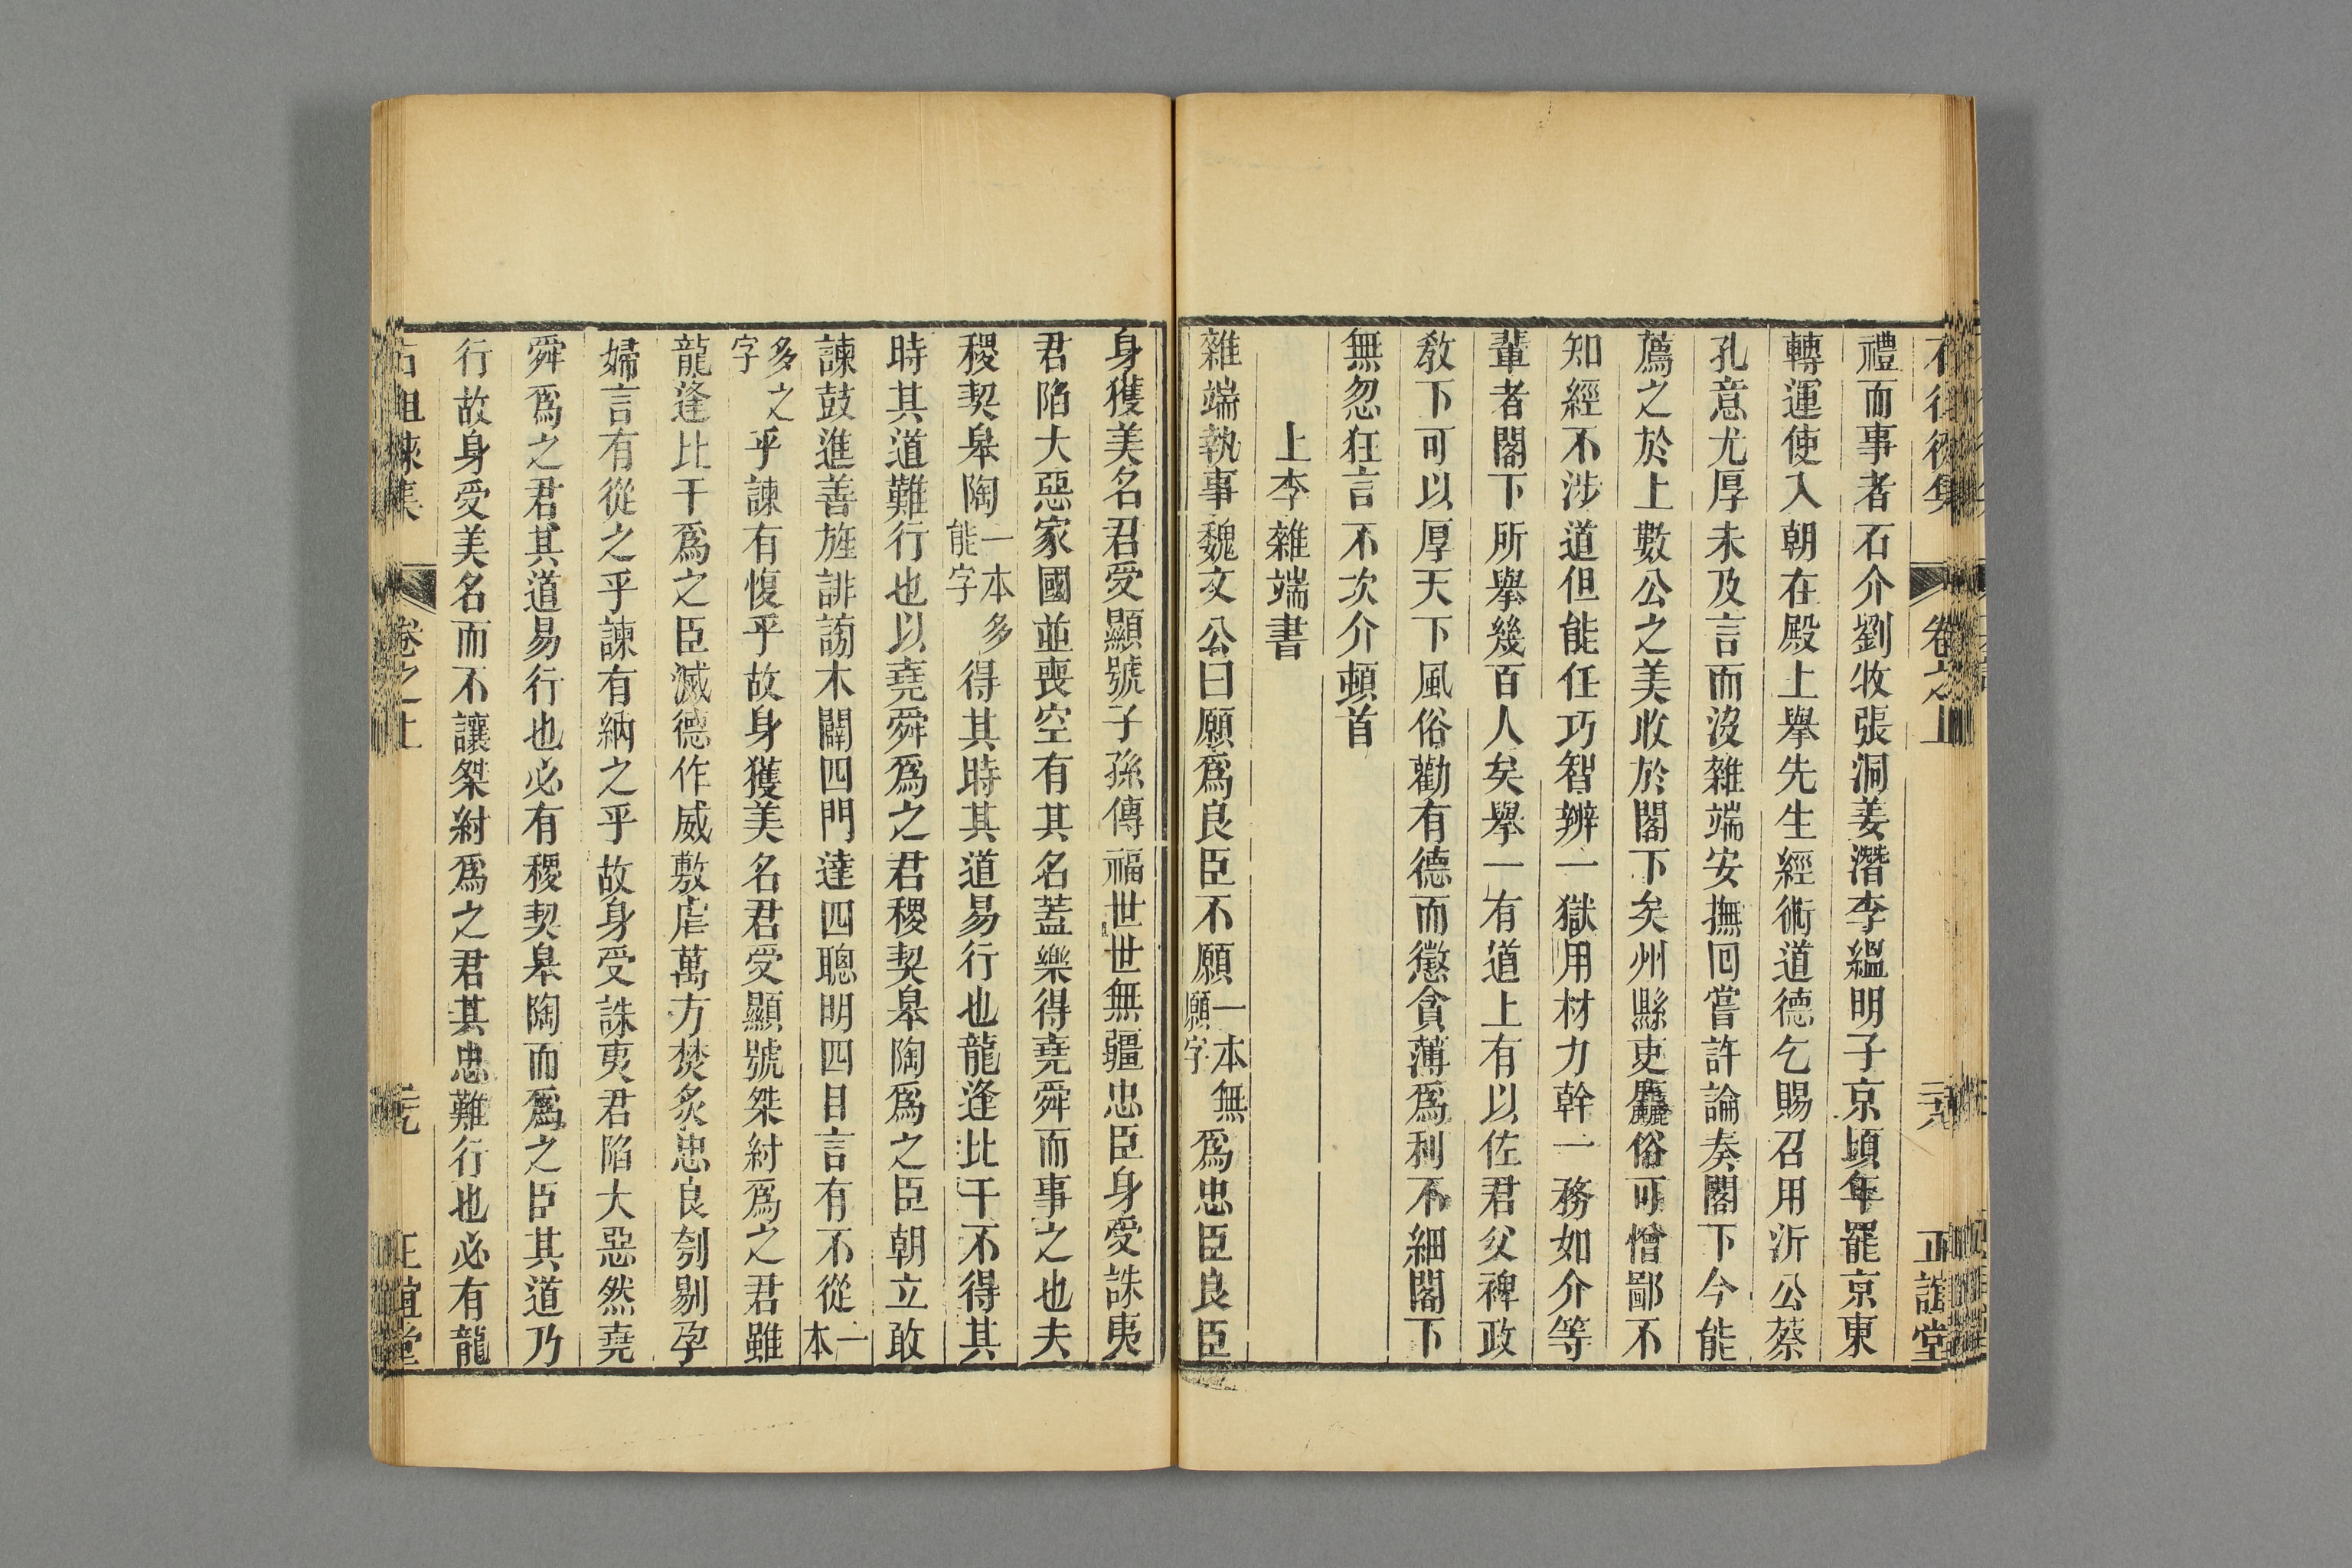 禮而事者石介劉牧張洞姜潛李縕明子京頃年罷京東
轉運使入朝在殿上舉先生經術道德乞賜召用沂公蔡
孔意尤厚未及言而沒雜端安撫回嘗許論奏閣下今能
薦之於上數公之美收於閣下矣州縣吏麤俗可憎鄙不
知經不涉道但能任巧智辨一獄用材力幹一務如介等
輩者閣下所舉幾百人矣舉一有道上有以佐君父裨政
敎下可以厚天下風俗勸有德而懲貪薄爲利不細閣下
無忽狂言不次介頓首
上李雜端書
雜端執事魏文公曰願爲良臣不願一本無願字爲忠臣良臣
身獲美名君受顯號子孫傳福世世無疆忠臣身受誅夷
君陷大惡家國並喪空有其名蓋樂得堯舜而事之也夫
稷契皋陶一本多能字得其時其道易行也龍逢比干不得其
時其道難行也以堯舜爲之君稷契皋陶爲之臣朝立敢
諫鼓進善旌誹謗木闢四門達四聰明四目言有不從一本
多之字乎諫有愎乎故身獲美名君受顯號桀紂爲之君雖
龍逢比干爲之臣滅德作威敷虐萬方焚炙忠良刳剔孕
婦言有從之乎諫有納之乎故身受誅夷君陷大惡然堯
舜爲之君其道易行也必有稷契皋陶而爲之臣其道乃
行故身受美名而不讓桀紂爲之君其忠難行也必有龍
卷之上